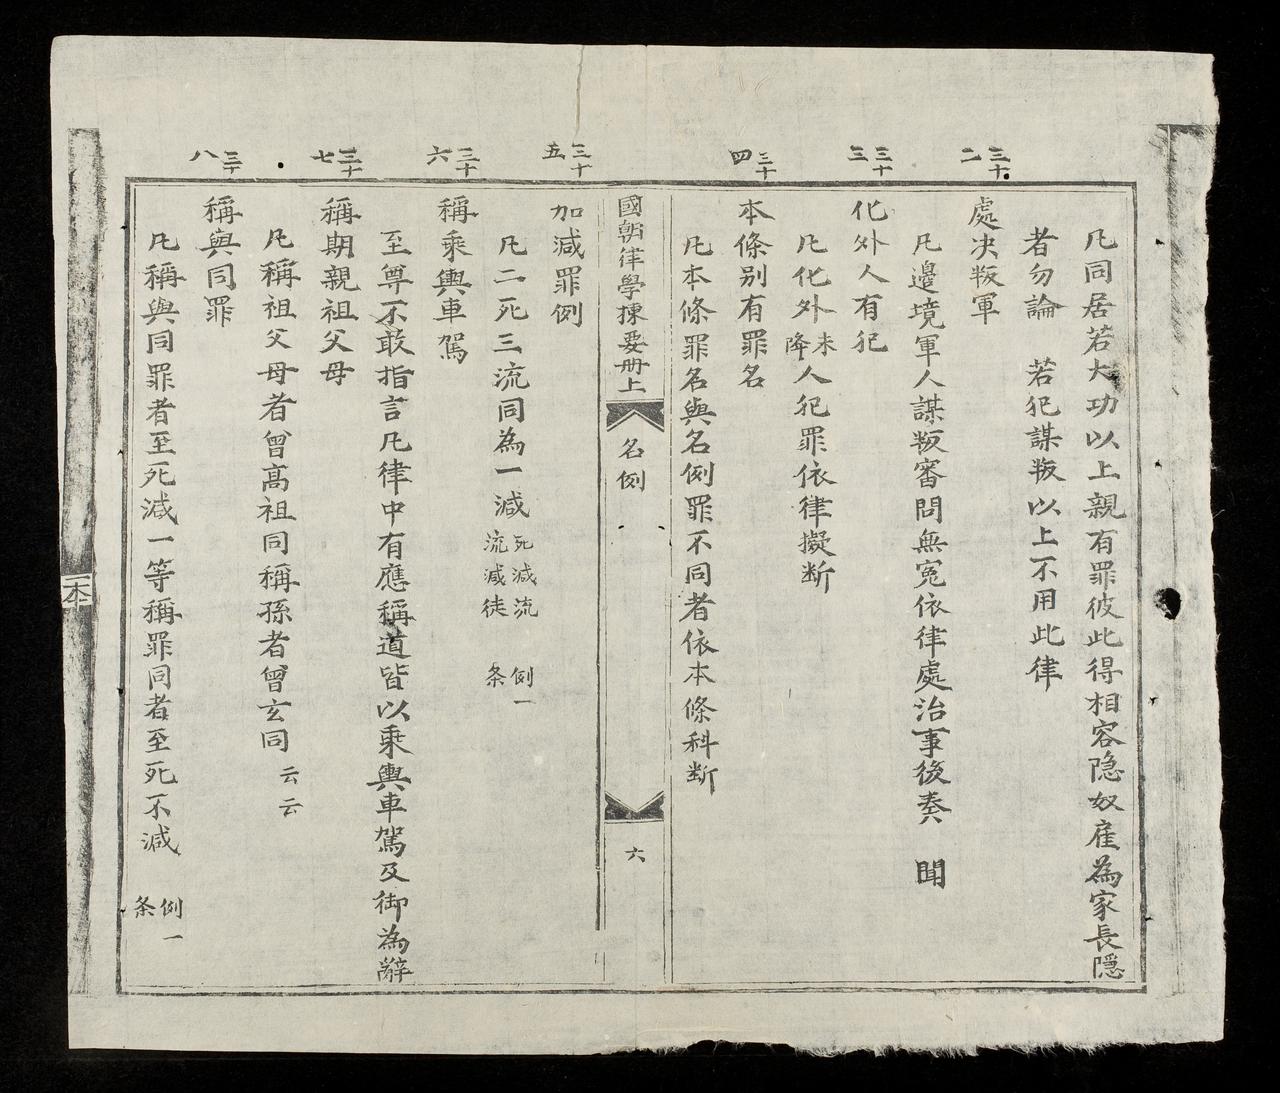 凡同居若大功以上親有罪彼此得相容隐奴雇為家長隱
者勿論　若犯謀叛以上不用此律
三十二
處决叛軍
凡邊境軍人謀叛審問無冤依律處治事後奏　聞
三十三
化外人有犯
凡化外來降人犯罪依律擬断
三十四
本條别有罪名
凡本條罪名與名例罪不同者依本條科断
國朝律學揀要册上　名例　六
三十五
加減罪例
凡二死三流同為一減死減流流減徒　例一条
三十六
稱乘輿車駕
至尊不敢指言凡律中有應稱道皆以乘輿車駕及御為辭
三十七
稱期親祖父母
凡稱祖父母者曾高祖同稱孫者曾玄同云云
三十八
稱與同罪
凡稱與同罪者至死减一等稱罪同者至死不减　例一条
本